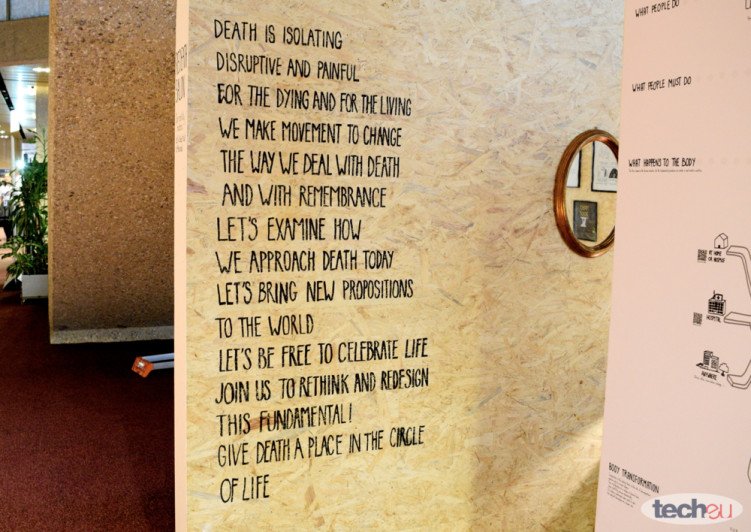 DEATH IS ISOLATING
DISRUPTIVE AND PAINFUL
FOR THE DYING AND FOR THE LIVING
WE MAKE MOVEMENT TO CHANGE
THE WAY WE DEAL WITH DEATH
AND WITH REMEMBRANCE
LET'S EXAMINE HOW
WE APPROACH DEATH TODAY
LET'S BRING NEW PROPOSITIONS
TO THE WORLD
LET'S BE FREE TO CELEBRATE LIFE
JOIN US TO RETHINK AND REDESIGN
THIS FUNDAMENTAL!
GIVE DEATH A PLACE IN THE CIRCLE
OF LIFE
WHAT PEOPLE DO
WHAT PEOPLE MUST DO
WHAT HAPPENS TO THE BODY
AT HOME
OR HOSPICE
HOSPITAL
ANYWHERE
BODY TRANSFORMATION
tech.eu